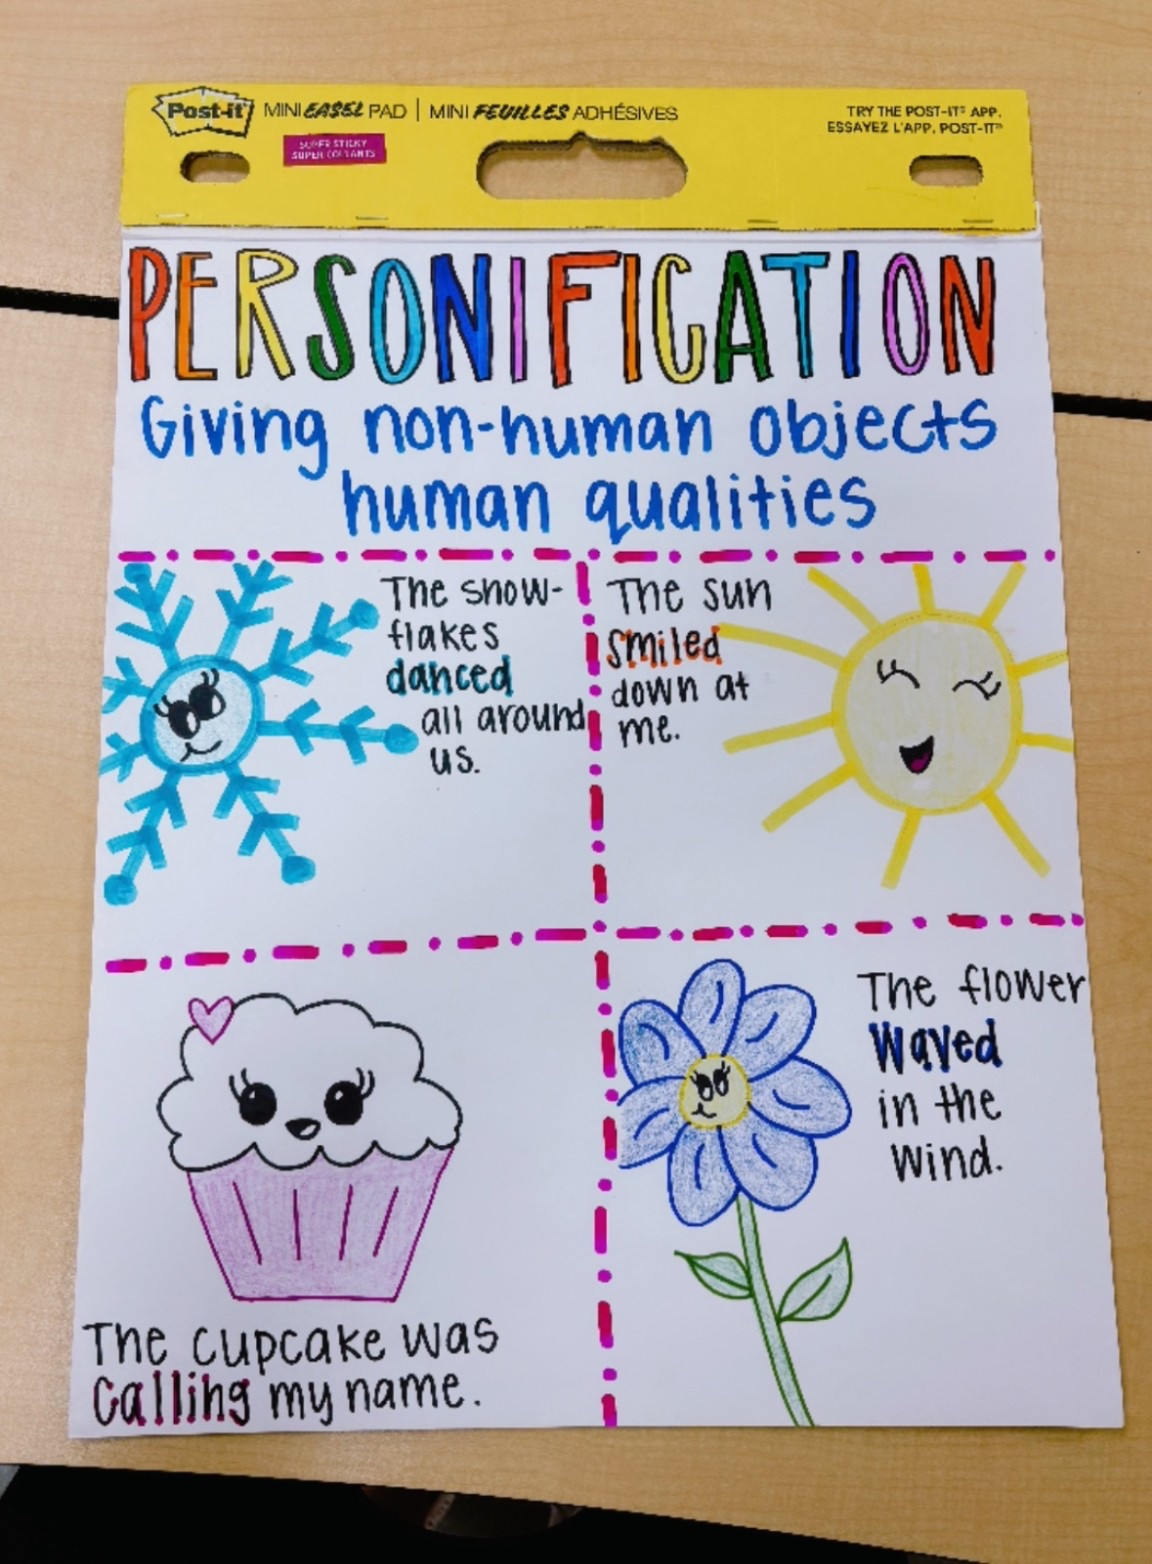 Post-it MINI EASEL PAD | MINI FEUILLES ADHÉSIVES
SUPER STICKY
SUPER COLLANTS
TRY THE POST-IT® APP.
ESSAYEZ L'APP. POST-IT®
PERSONIFICATION
Giving non-human objects
human qualities
The snow-
flakes
danced
all around
us.
The sun
smiled
down at
me.
The cupcake was
calling my name.
The flower
waved
in the
wind.